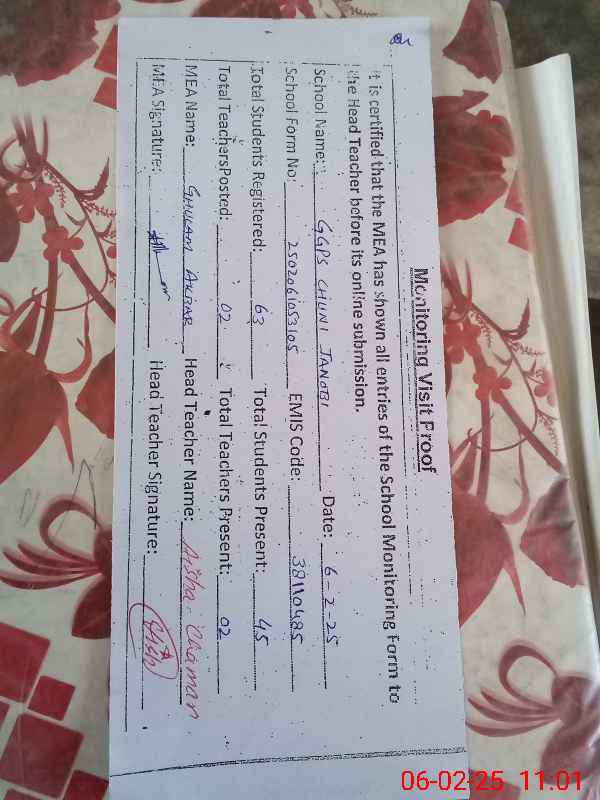 Monitoring Visit Proof
It is certified that the MEA has shown all entries of the School Monitoring Form to
the Head Teacher before its online submission.
School Name: GGPS CHUNI JANOBI Date: 6-2-25
School Form No: 2502061053105 EMIS Code: 38110485
Total Students Registered: 63 Total Students Present: 45
Total TeachersPosted: 02 Total Teachers Present: 02
MEA Name: GHULAM AKBAR Head Teacher Name: Aisha Chaman
MEA Signature: Head Teacher Signature:
06-02-25 11.01